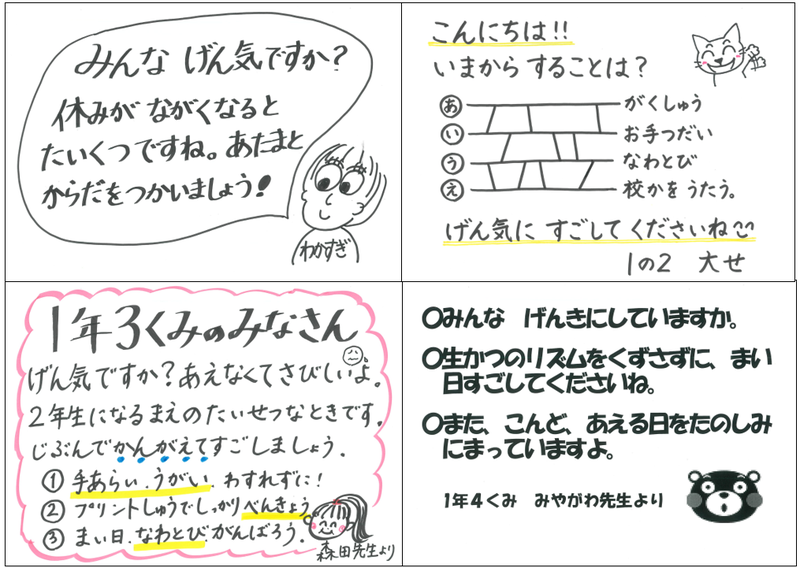 みんな げん気ですか？
休みが ながくなると
たいくつですね。あたまと
からだをつかいましょう！
わかすぎ
こんにちは!!
いまから することは？
あ がくしゅう
い お手つだい
う なわとび
え 校かを うたう。
げん気に すごして くださいね
1の2 大せ
1年3くみのみなさん
げん気ですか？あえなくてさびしいよ。
2年生になるまえのたいせつなときです。
じぶんでかんがえてすごしましょう．
① 手あらい．うがい．わすれずに！
② プリントしゅうでしっかりべんきょう
③ まい日．なわとび．がんばろう．
森田先生より
〇みんな げんきにしていますか。
〇生かつのリズムをくずさずに、まい
日すごしてくださいね。
〇また、こんど、あえる日をたのしみ
にまっていますよ。
1年4くみ みやがわ先生より